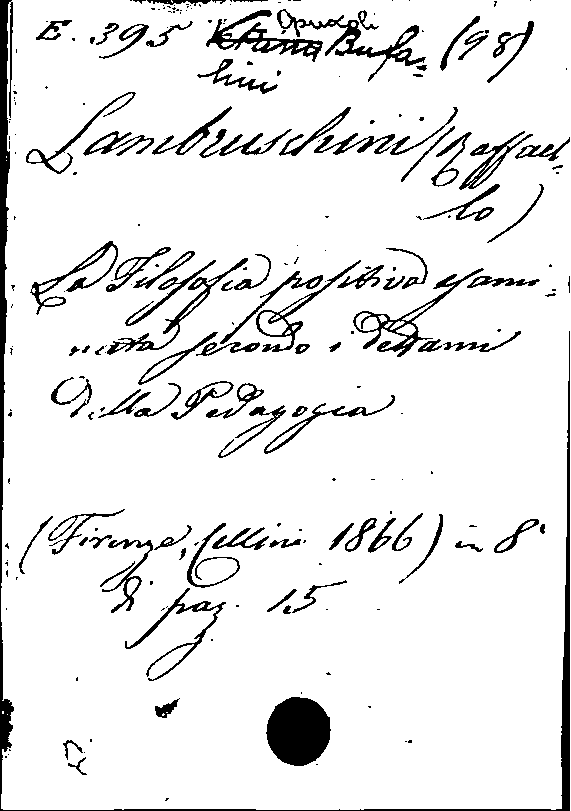 E. 395 Opuscoli Bufa= (98)
lini
Lambruschini (Raffael=
lo)
La Filosofia positiva esami=
nata secondo i dettami
della Pedagogia
(Firenze, Cellini 1866) in 8°
di pag. 15